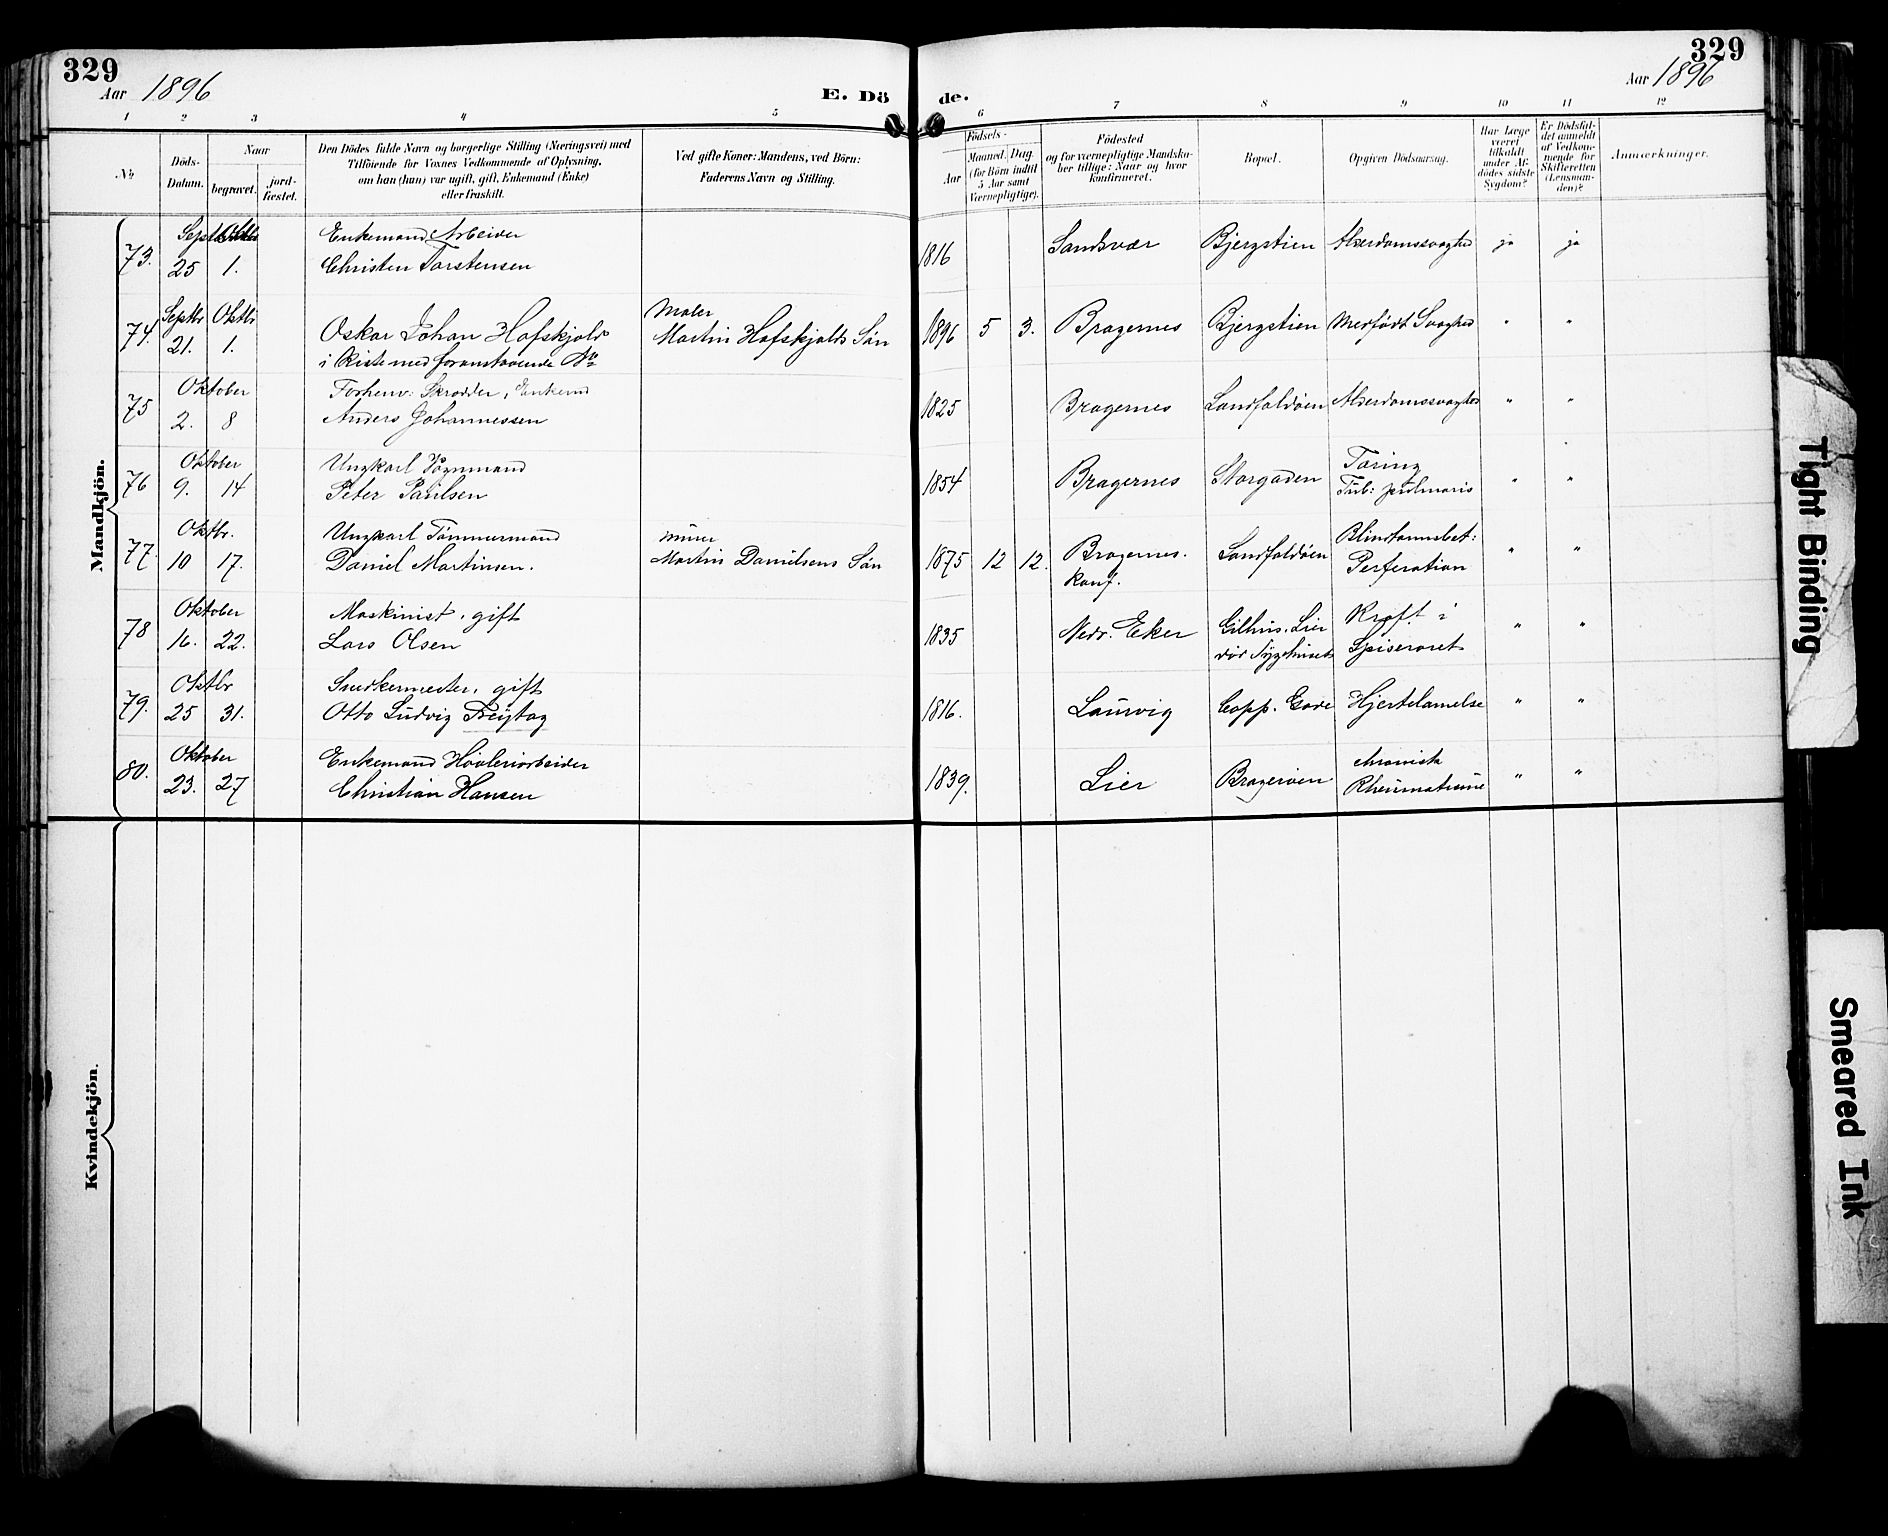 329
Aar 1896
E. Dö
de.
329
Aar 1896
1 2 3 4 5 6 7 8 9 10 11 12
No
Döds-
Datum.
Naar
begravet.
jord-
fæstet.
Den Dödes fulde Navn og borgerlige Stilling (Næringsvei) med
Tilföiende for Voxnes Vedkommende af Oplysning,
om han (hun) var ugift, gift, Enkemand (Enke)
eller fraskilt.
Ved gifte Koner: Mandens, ved Börn:
Faderens Navn og Stilling.
Födsels-
Aar
Maaned. Dag.
(for Börn indtil
5 Aar samt
Værnepligtige).
Födested
og for værnepligtige Mandska-
ber tillige: Naar og hvor
konfirmeret.
Bopæl.
Opgiven Dödsaarsag.
Har Læge
været
tilkaldt
under Af-
dödes sidste
Sygdom?
Er Dödsfal-
det anmeldt
af Vedkom-
mende for
Skifteretten
(Lensman-
den)?
Anmærkninger.
Mandkjön.
73. Septbr 25 Oktbr 1. Enkemand Arbeider
Christen Torstensen
1816 Sandsvær Bjergstien Alderdomssvaghed ja ja
74. Septbr 21. Oktbr 1. Oskar Johan Hafskjolds
i Kiste med foranstaaende No
Maler
Martin Hafskjolds Søn
1896 5 3. Bragernes Bjergstien Medfødt Svaghed " "
75 Oktober 2. 8 Forhenv: Skrædder, Enkemd
Anders Johannessen
1825 Bragernes Landfaldøen Alderdomssvaghed " "
76 Oktober 9. 14 Ungkarl Vognmand
Peter Paulsen
1854 Bragernes Storgaden Tæring
Tub: pulmonis " "
77. Oktbr. 10 17. Ungkarl Tømmermand
Daniel Martinsen.
Murer
Martin Danielsens Søn
1875 12 12. Bragernes.
konf.
Landfaldøen Blindtarmsbet:
Perforation " "
78 Oktober 16. 22. Maskinist, gift
Lars Olsen
1835 Nedr. Eker Gilhus, Lier
død Sygehuset
Kræft i
Spiserøret " "
79. Oktbr 25 31. Snedkermester, gift
Otto Ludvig Freytag
1816. Laurvig Capp. Gade Hjertelamelse " "
80. Oktober 23. 27 Enkemand Høvleriarbeider
Christian Hansen
1839. Lier Bragerøen chronisk
Rheumatisme " "
Kvindekjön.
Tight Binding
Smeared Ink